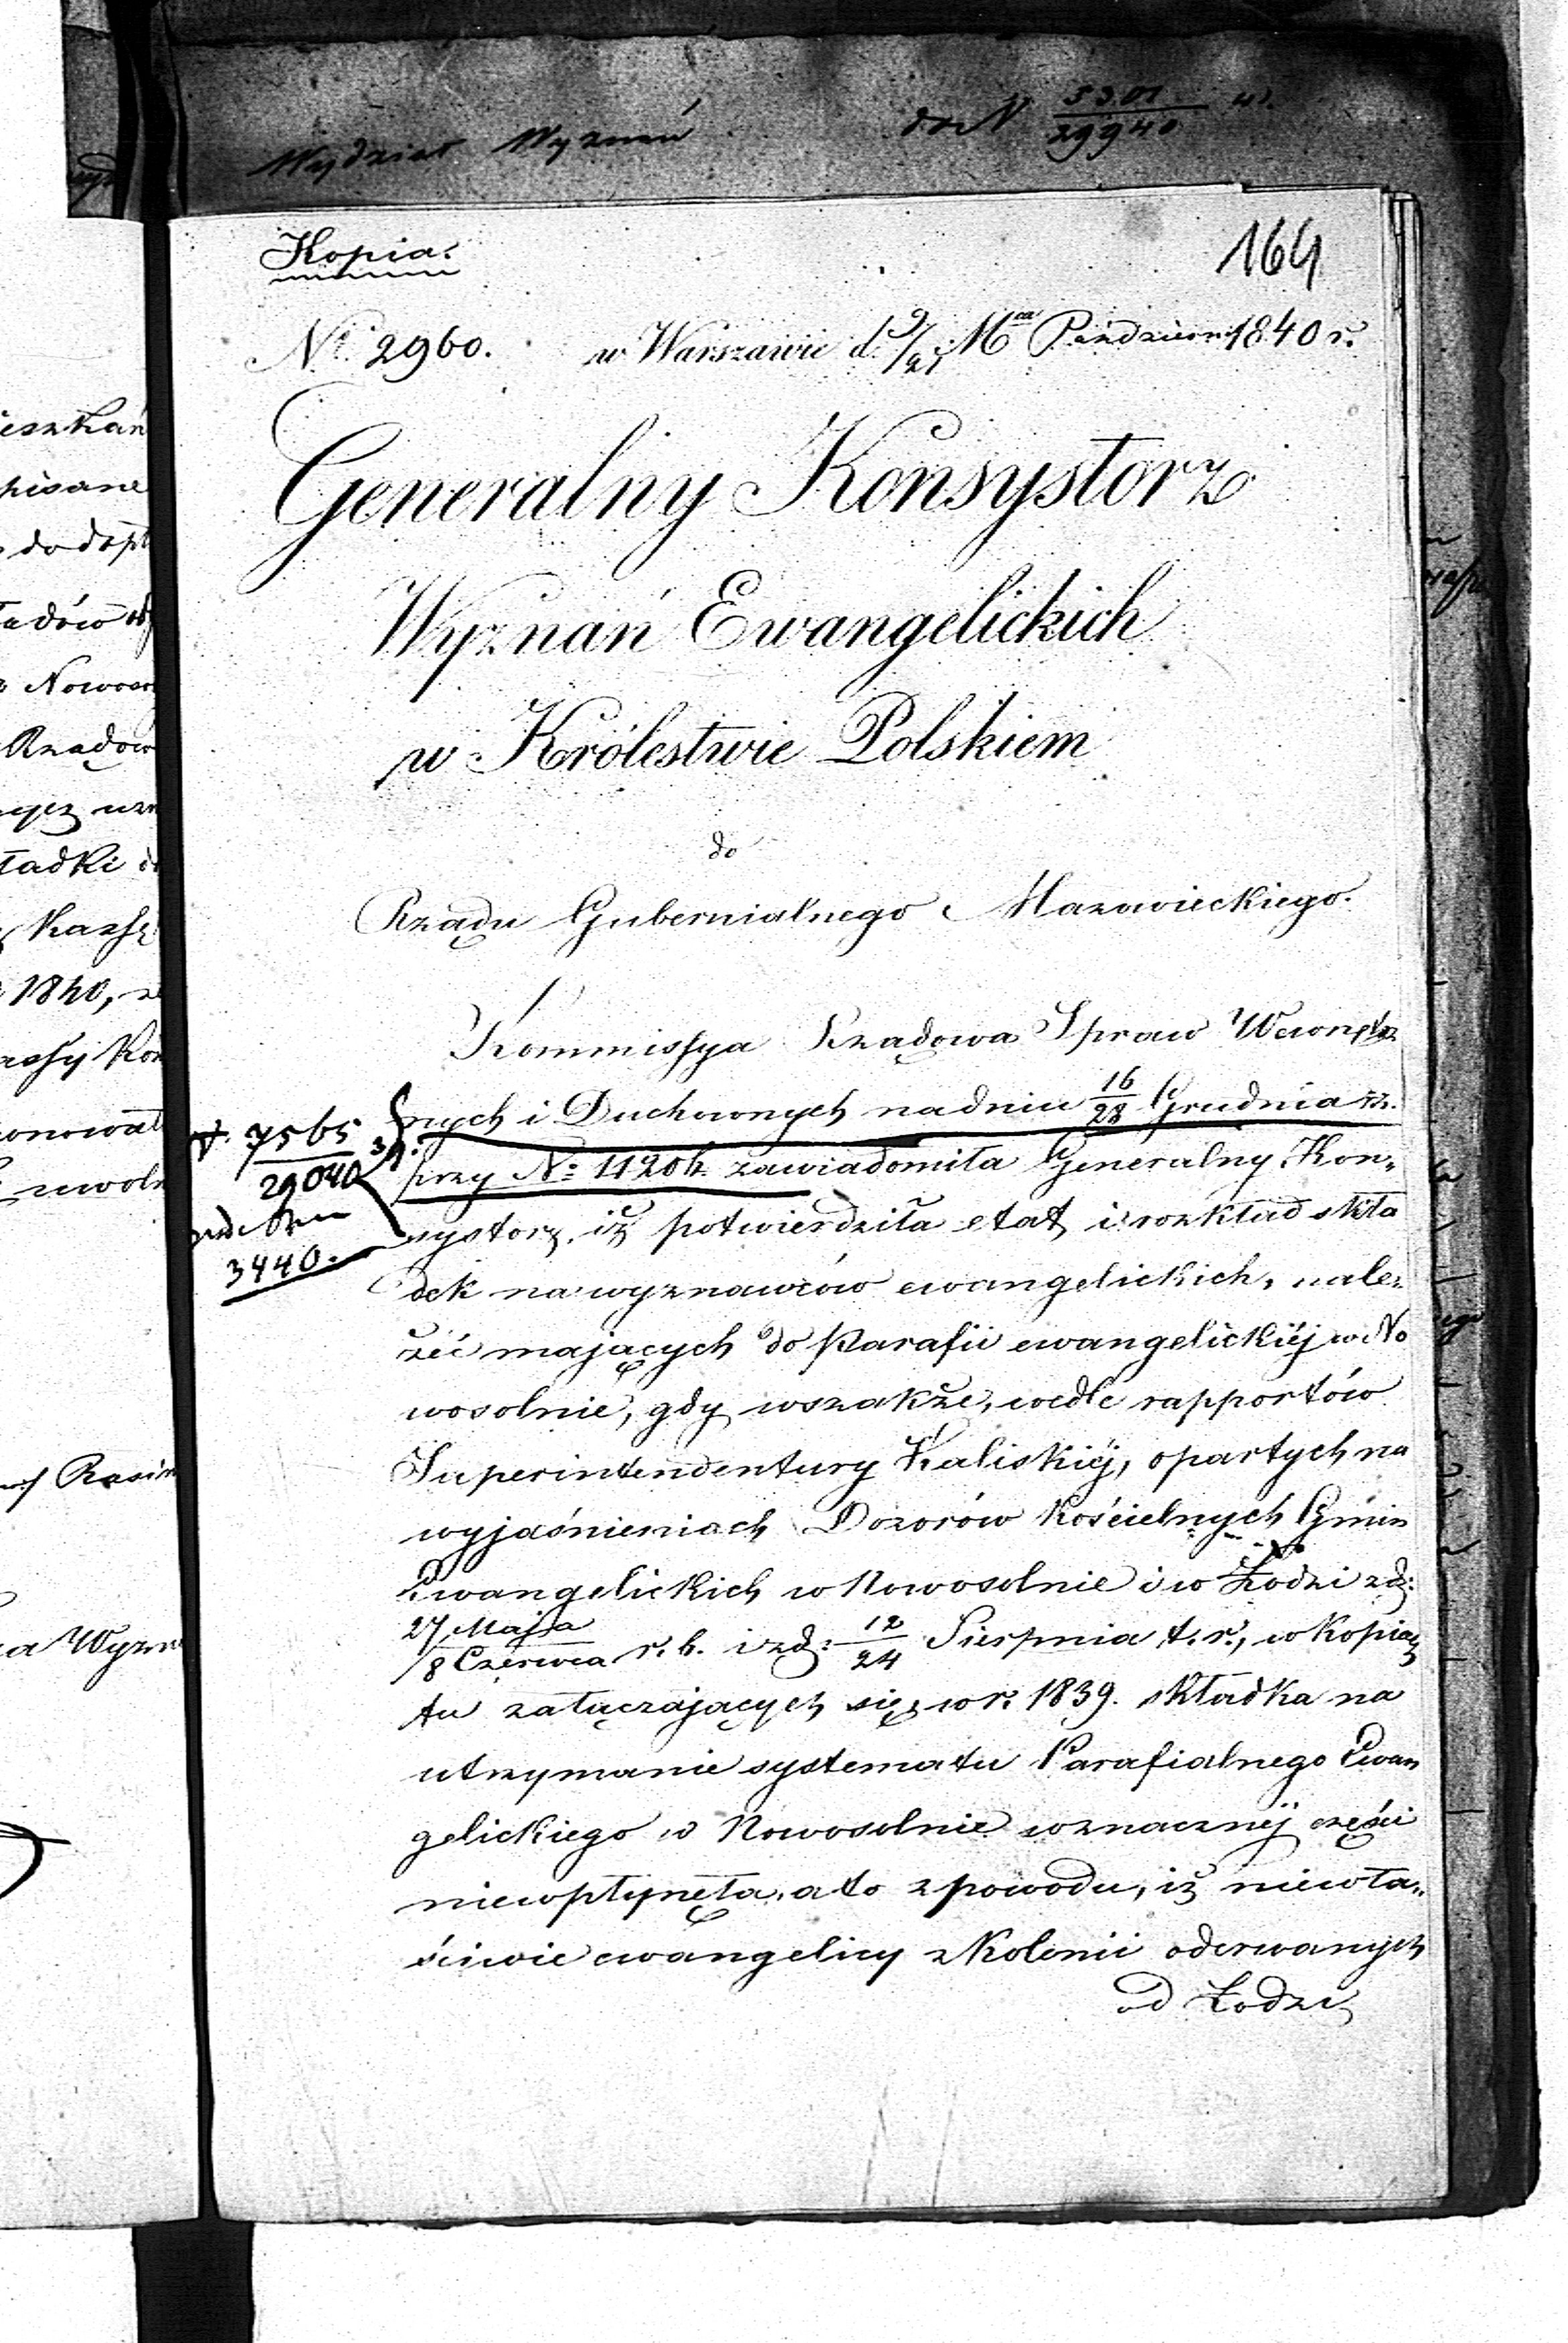 Wydział Wyznań do N 5301/29940
Kopia.
164
No. 2960. w Warszawie d. 9/21 Mca Październ: 1840 r.
Generalny Konsystorz
Wyznań Ewangelickich
w Królestwie Polskiem
do
Rządu Gubernialnego Mazowieckiego.
Kommissya Rządowa Spraw Wewnętrz
nych i Duchownych na dniu 16/28 Grudnia
przy No 11206. zawiadomiła Generalny Kon-
systorz, iż potwierdziła etat i rozkład skła
dek na wyznawców ewangelickich, nale-
żéć mających do Parafii ewangelickiéj w No
wosolnie, gdy wszakże, wedle rapportów
Superintendentury Kaliskiéj, opartych na
wyjaśnieniach Dozorów Kościelnych Gmin
Ewangelickich w Nowosolnie i w Łodzi z d:
27 Maja/8 Czerwca r. b. i z d: 12/24 Sierpnia t. r., w kopiach
tu załączających się, w r. 1839. składka na
utrzymanie systematu Parafialnego Ewan
gelickiego w Nowosolnie w znacznéj części
niewpłynęła, a to z powodu, iż niewła-
ściwie ewangelicy z Kolonii oderwanych
od Łodzi,
7565
29040
3440.
ieszkań
pisane
do
Nowosol
Rządow
ładki
1840,
uwoln
Wyzn